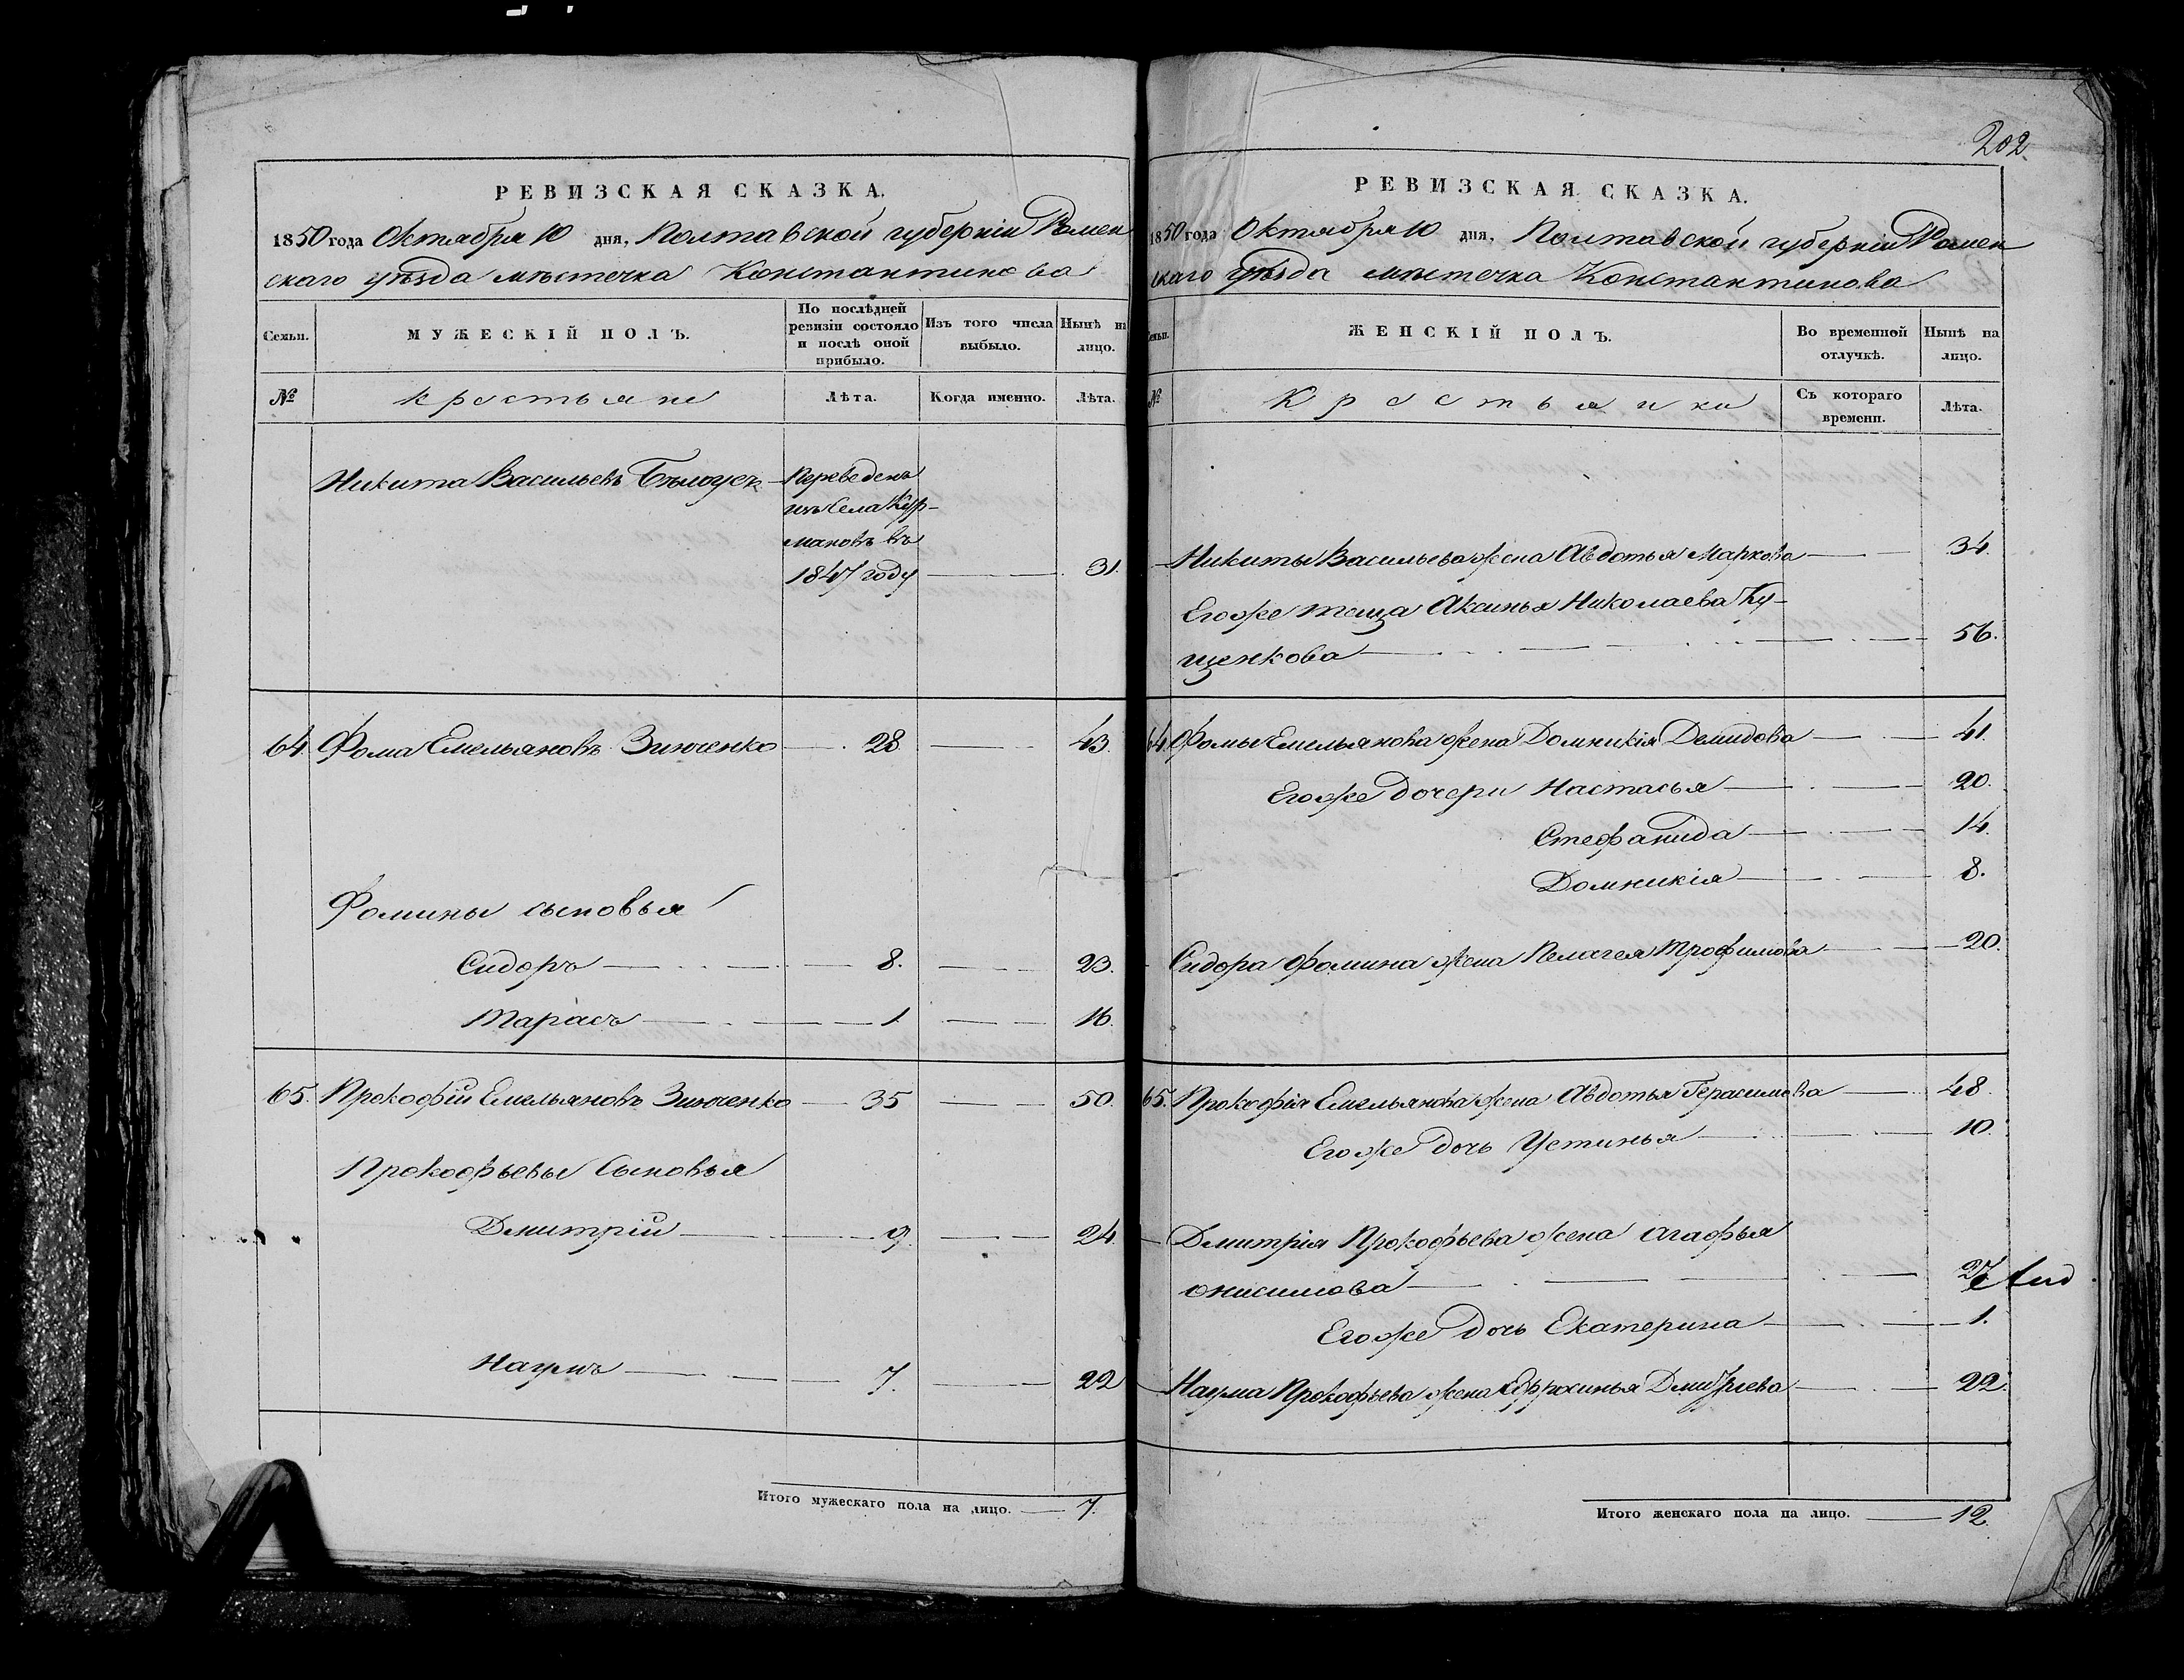 РЕВИЗСКАЯ СКАЗКА.
1850 года Октября 10 дня, Полтавской губерніи Ромен
скаго уѣзда мѣстечка Константинова
Семьи. МУЖЕСКІЙ ПОЛЪ. По послѣдней ревизіи состояло и послѣ оной прибыло. Изъ того числа выбыло. Нынѣ на лицо.
№ Крестьяне Лѣта. Когда именно. Лѣта.
Никита Васильевъ Бѣлоусъ Переведенъ
изъ Села Кур-
мановъ въ
1847 году 31.
64. Фома Емельяновъ Зинченко 28 43.
Фомины сыновья
Сидоръ 8. 23.
Тарасъ 1 16.
65. Прокофій Емельяновъ Зинченко 35 50.
Прокофьевы Сыновья
Дмитрій 9. 24.
Наумъ 7. 22
Итого мужескаго пола на лицо. 7.
202.
РЕВИЗСКАЯ СКАЗКА.
1850 года Октября 10 дня, Полтавской губерніи Ромен
скаго Уѣзда мѣстечка Константинова
Семьи. ЖЕНСКІЙ ПОЛЪ. Во временной отлучкѣ. Нынѣ на лицо.
№ Крестьянки Съ котораго времени. Лѣта.
Никиты Васильева жена Авдотья Маркова 34.
Егоже теща Аксинья Николаева Ку-
щенкова 56.
64. Фомы Емельянова жена Домникія Демидова 41.
Егоже дочери Настасья 20.
Стефанида 14.
Домникія 8.
Сидора Фомина жена Пелагея Трофимова 20.
65. Прокофія Емельянова жена Авдотья Герасимова 48.
Егоже дочь Устинья 10.
Дмитрія Прокофьева жена Агафья
Онисимова
Егоже дочь Екатерина 1.
Наума Прокофьева жена Ефросинья Дмитріева 22.
Итого женскаго пола на лицо. 12.